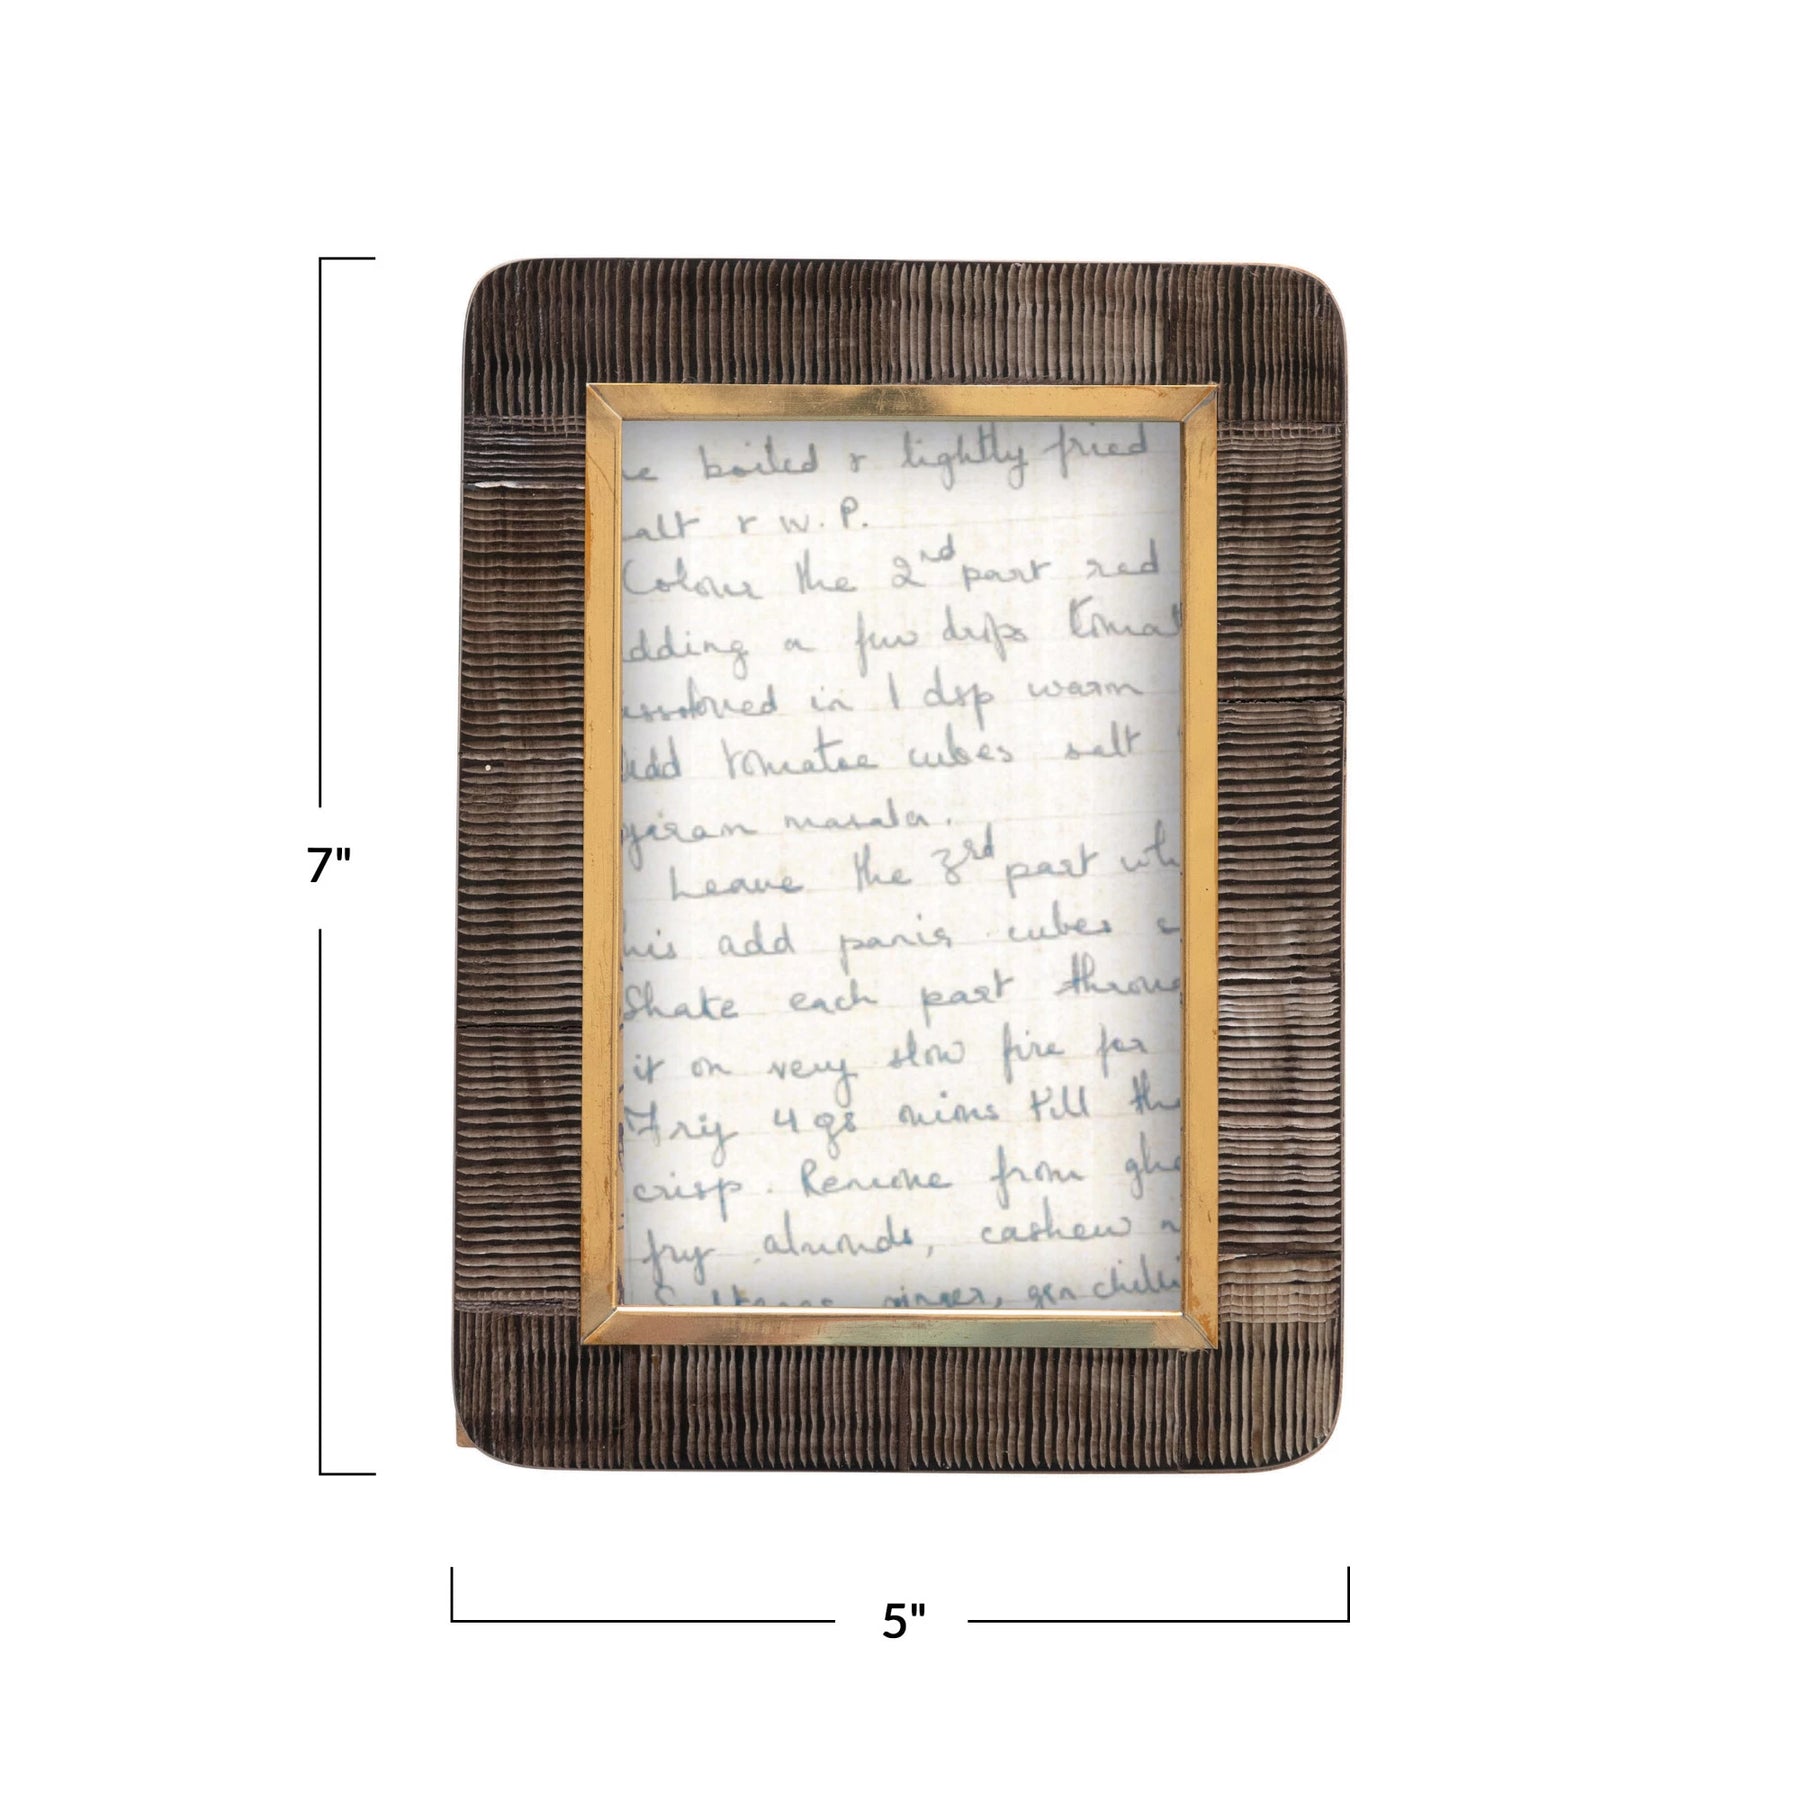 boiled & lightly fried
alt & W.P.
Colour the 2nd part red
dding a few drops tomat
in 1 dsp warm
Add tomatoe cubes salt
garam masala.
7"
Leave the 3rd part wh
his add panir cubes
Shake each part throug
it on very slow fire for
Fry 4 gs onions till the
crisp. Remove from ghe
fry almonds, cashew n
ginger, grn chilli
5"